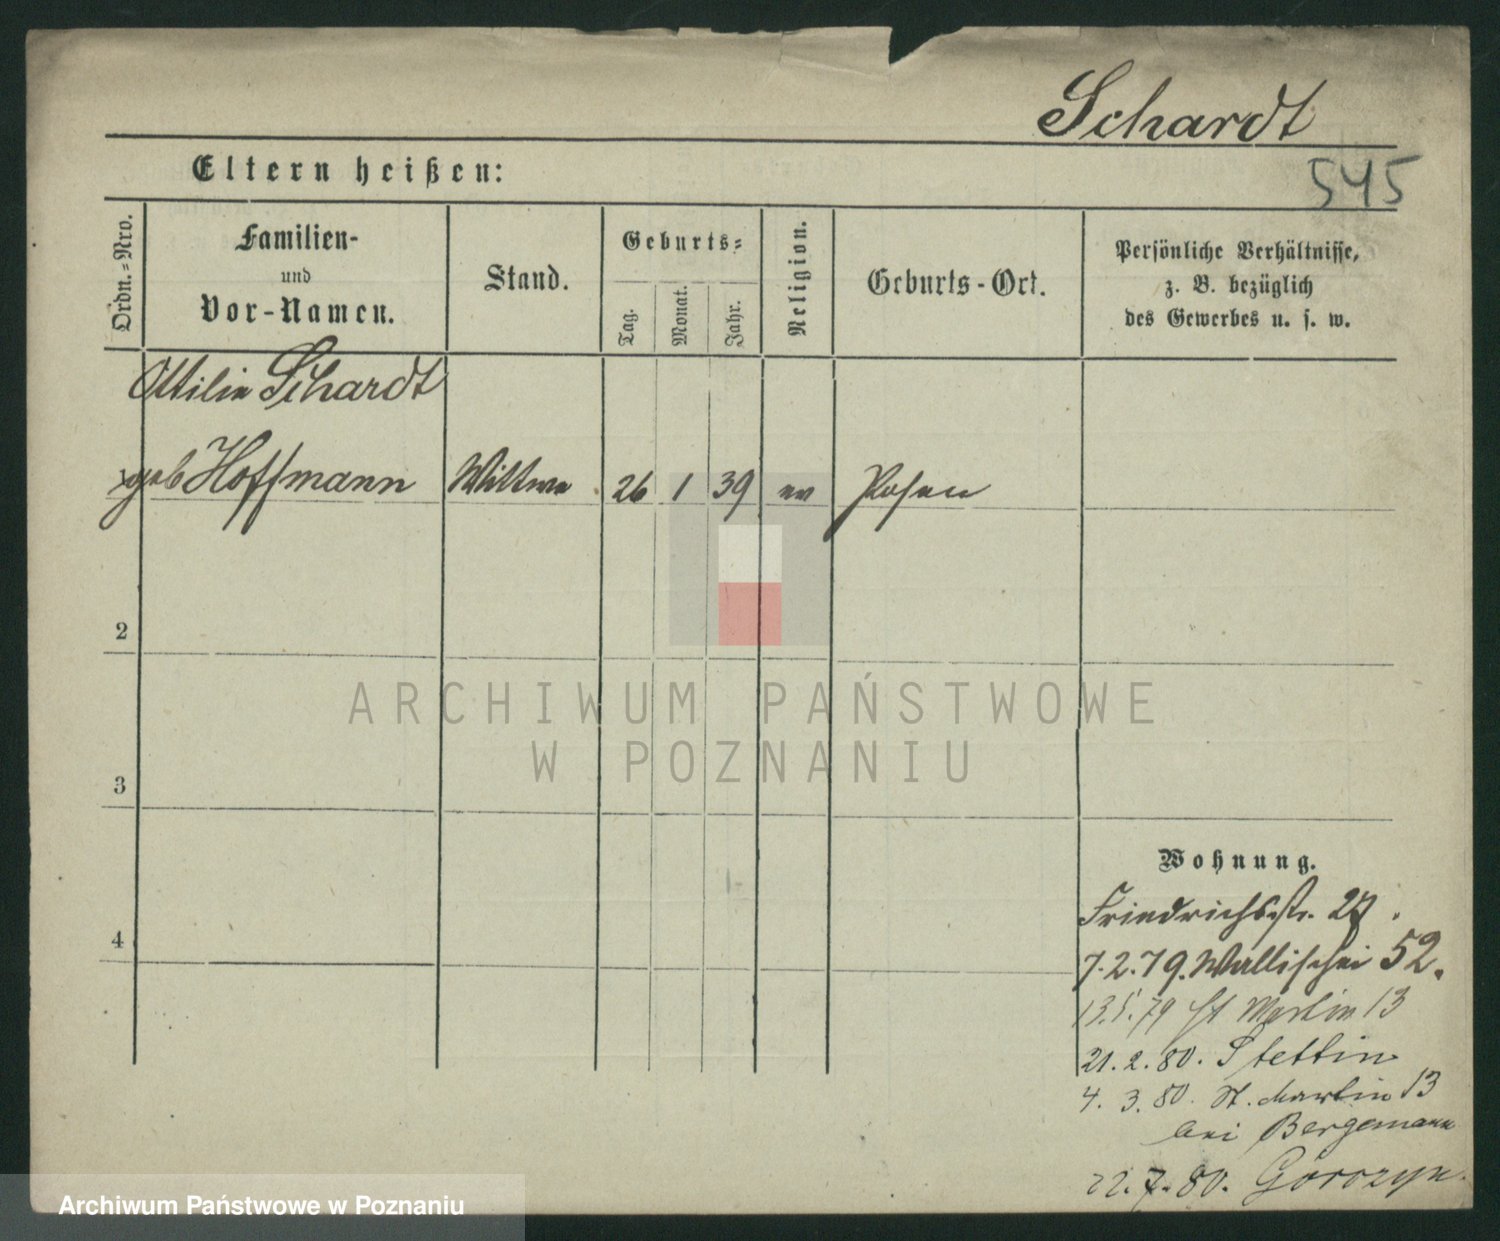 Schardt
545
Eltern heißen:
Ordn.-Nro.
Familien-
und
Vor-Namen.
Stand.
Geburts-
Tag.
Monat.
Jahr.
Religion.
Geburts-Ort.
Persönliche Verhältnisse,
z. B. bezüglich
des Gewerbes u. s. w.
Ottilie Schardt
geb Hoffmann Wittwe 26 1 39 ev Posen
2
3
4
Wohnung.
Friedrichsstr. 27.
7.2.79. Wallischei 52.
13.5.79 St Martin 13
21.2.80. Stettin
4. 3. 80. St. Martin 13
bei Bergemann
22.7.80. Gorczyn.
ARCHIWUM PAŃSTWOWE
W POZNANIU
Archiwum Państwowe w Poznaniu